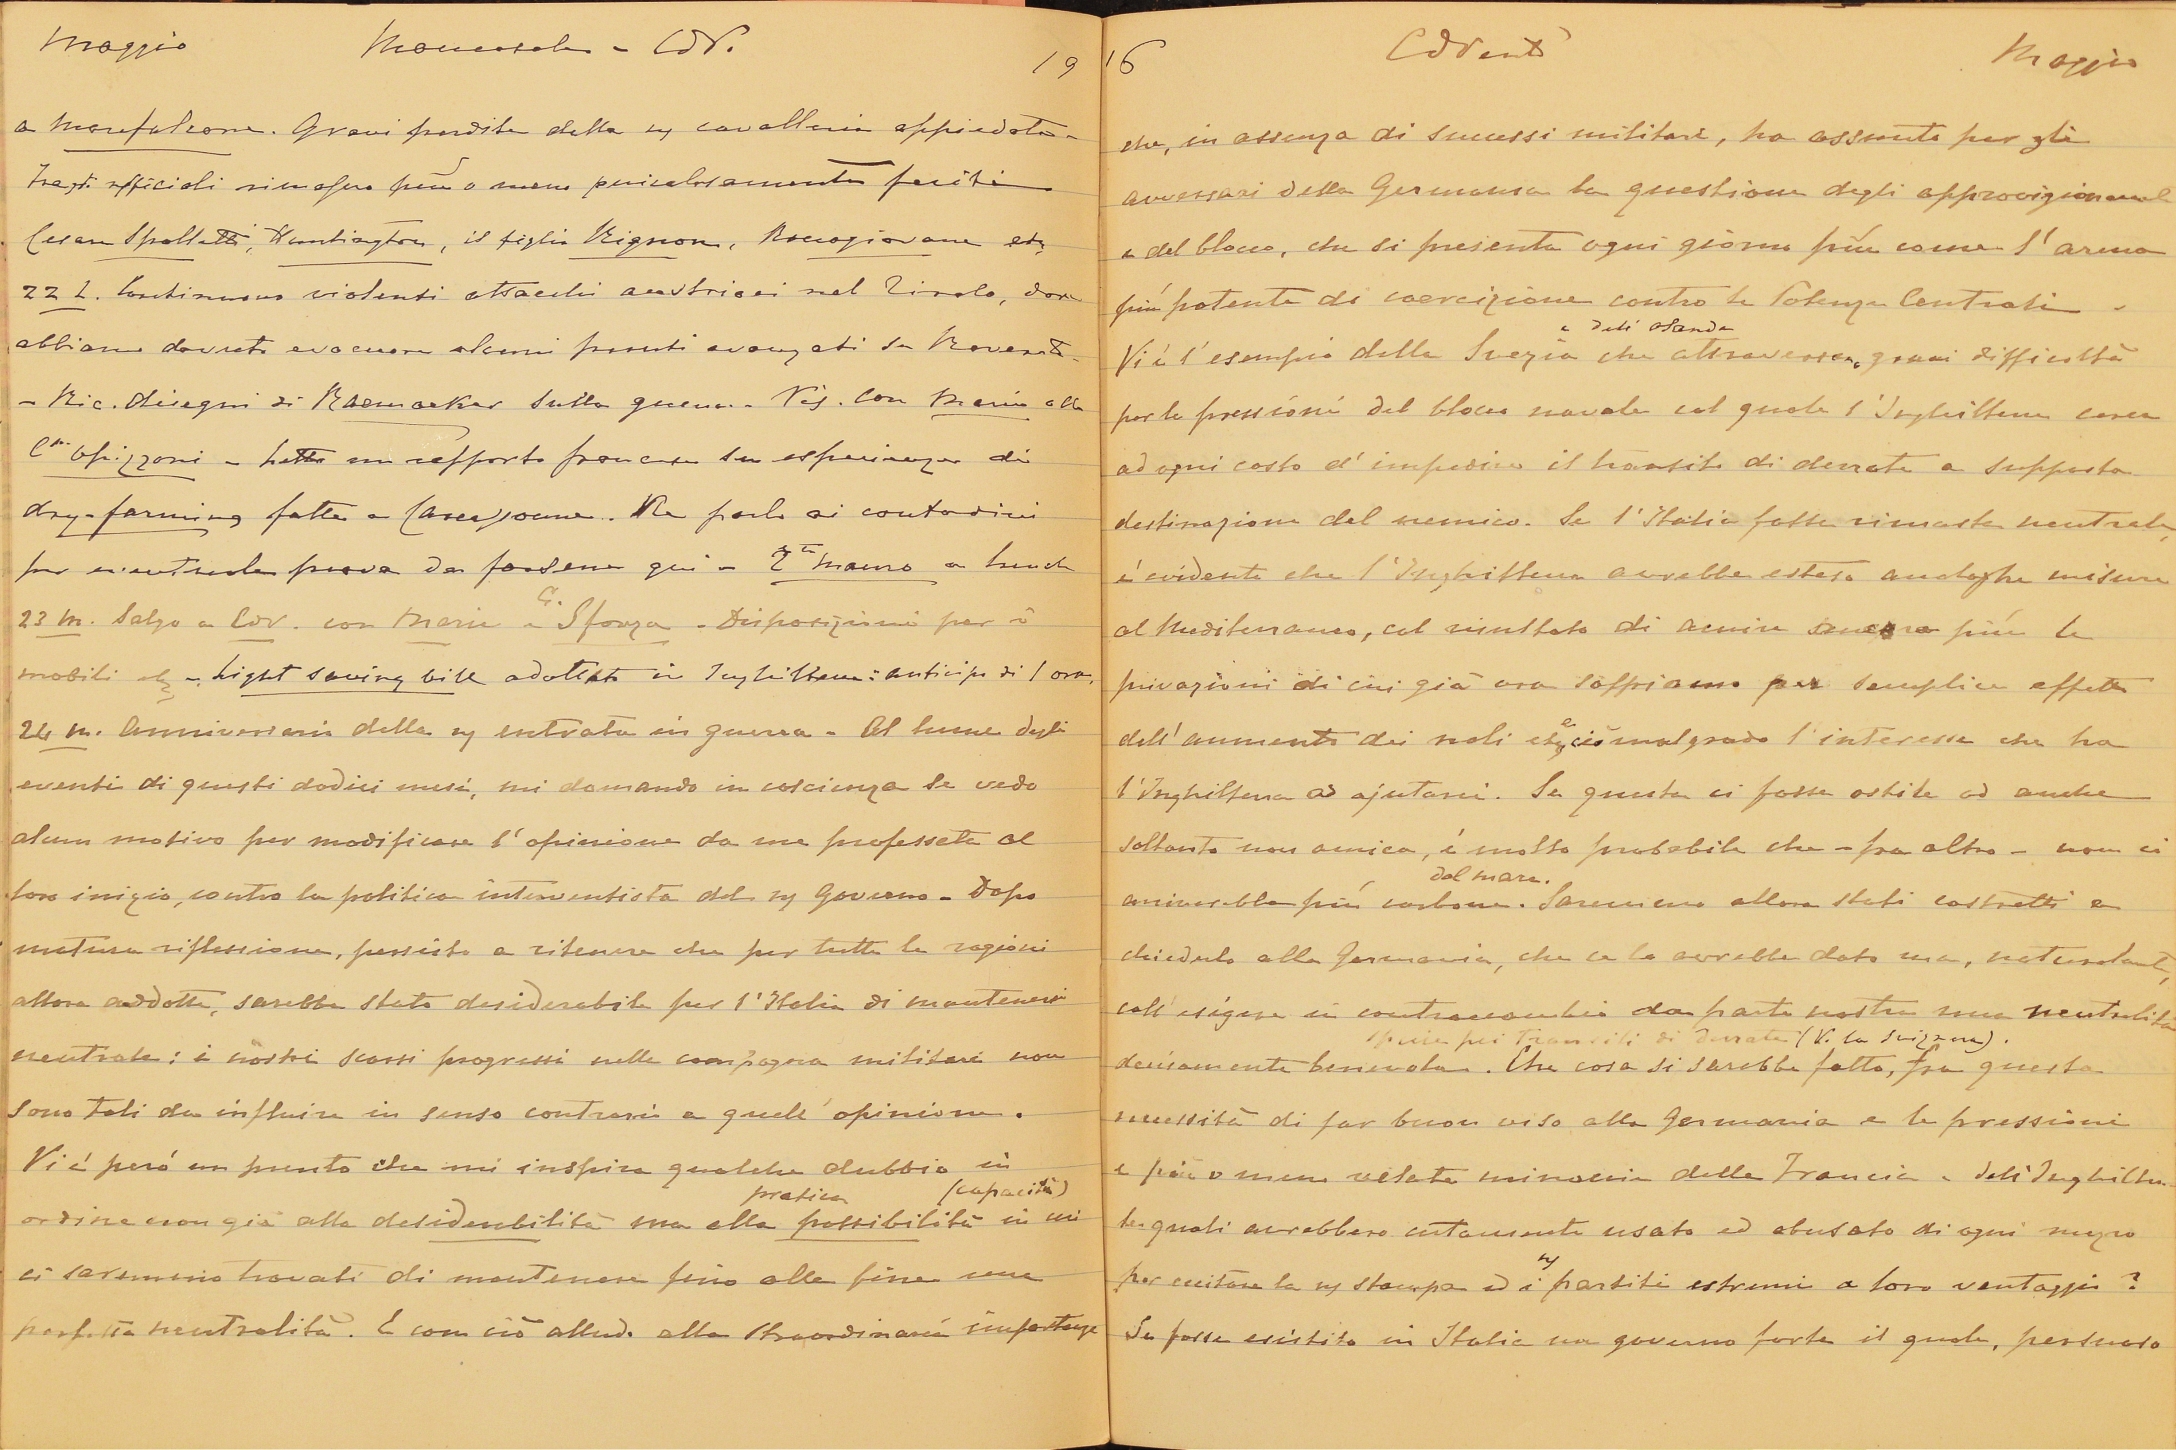 Maggio Moncasale - CdV. 19
a Monfalcone. Gravi perdite della ns cavalleria appiedata -
Tra gli ufficiali rimasero più o meno pericolosamente feriti
Cesare Spalletti, Huntington, il figlio Rignon, Roccagiovane etc
22 L. Continuano violenti attacchi austriaci nel Tirolo, dove
abbiamo dovuto evacuare alcuni punti avanzati su Rovereto -
- Ric. disegni di Raemaeker sulla guerra - Vis. con Maria alla
Cssa Opizzoni - Letto un rapporto francese su esperienze di
dry-farming fatte a Carcassonne. Ne parlo ai contadini
per eventuale prova da farsene qui - Mauro a lunch
23 M. Salgo a CdV. con Maria e G. Sforza - Disposizioni per i
mobili etc - Light saving bill adottato in Inghilterra: anticipo di 1 ora.
24 m. Anniversario della ns entrata in guerra - Al lume degli
eventi di questi dodici mesi, mi domando in coscienza se vedo
alcun motivo per modificare l'opinione da me professata al
loro inizio, contro la politica interventista del ns Governo - Dopo
matura riflessione, persisto a ritenere che per tutte le ragioni
allora addotte, sarebbe stato desiderabile per l'Italia di mantenersi
neutrale: i nostri scarsi progressi nella campagna militare non
sono tali da influire in senso contrario a quell'opinione.
Vi è però un punto che mi inspira qualche dubbio in
pratica (capacità)
ordine non già alla desiderabilità ma alla possibilità in cui
ci saremmo trovati di mantenere fino alla fine una
perfetta neutralità. E con ciò alludo alla straordinaria importanza
16 CdVento Maggio
che, in assenza di successi militari, ha assunto per gli
avversari della Germania la questione degli approvigionamenti
e del blocco, che si presenta ogni giorno più come l'arma
più potente di coercizione contro le Potenze Centrali -
e dell'Olanda
Vi è l'esempio della Svezia che attraversano gravi difficoltà
per la pressioni del blocco navale col quale l'Inghilterra cerca
ad ogni costo d'impedire il transito di derrate a supposta
destinazione del nemico. Se l'Italia fosse rimasta neutrale,
è evidente che l'Inghilterra avrebbe esteso analoghe misure
al Mediterraneo, col risultato di acuire sempre più le
privazioni di cui già ora soffriamo per semplice effetto
dell'aumento dei noli etc, e ciò malgrado l'interesse che ha
l'Inghilterra ad ajutarci. Se questa ci fosse ostile od anche
soltanto non amica, è molto probabile che - fra altro - non ci
dal mare.
arriverebbe più carbone. Saremmo allora stati costretti a
chiederlo alla Germania, che ce lo avrebbe dato ma, naturalmente,
coll'esigere in contraccambio da parte nostra una neutralità
specie pei transiti di derrate (V. la Svizzera).
decisamente benevola. Che cosa si sarebbe fatto, fra questa
necessità di far buon viso alla Germania e le pressioni
e più o meno velate minaccie della Francia e dell'Inghilterra
le quali avrebbero certamente usato ed abusato di ogni mezzo
ns
per eccitare la ns stampa ed i partiti estremi a loro vantaggio?
Se fosse esistito in Italia un governo forte il quale, persuaso